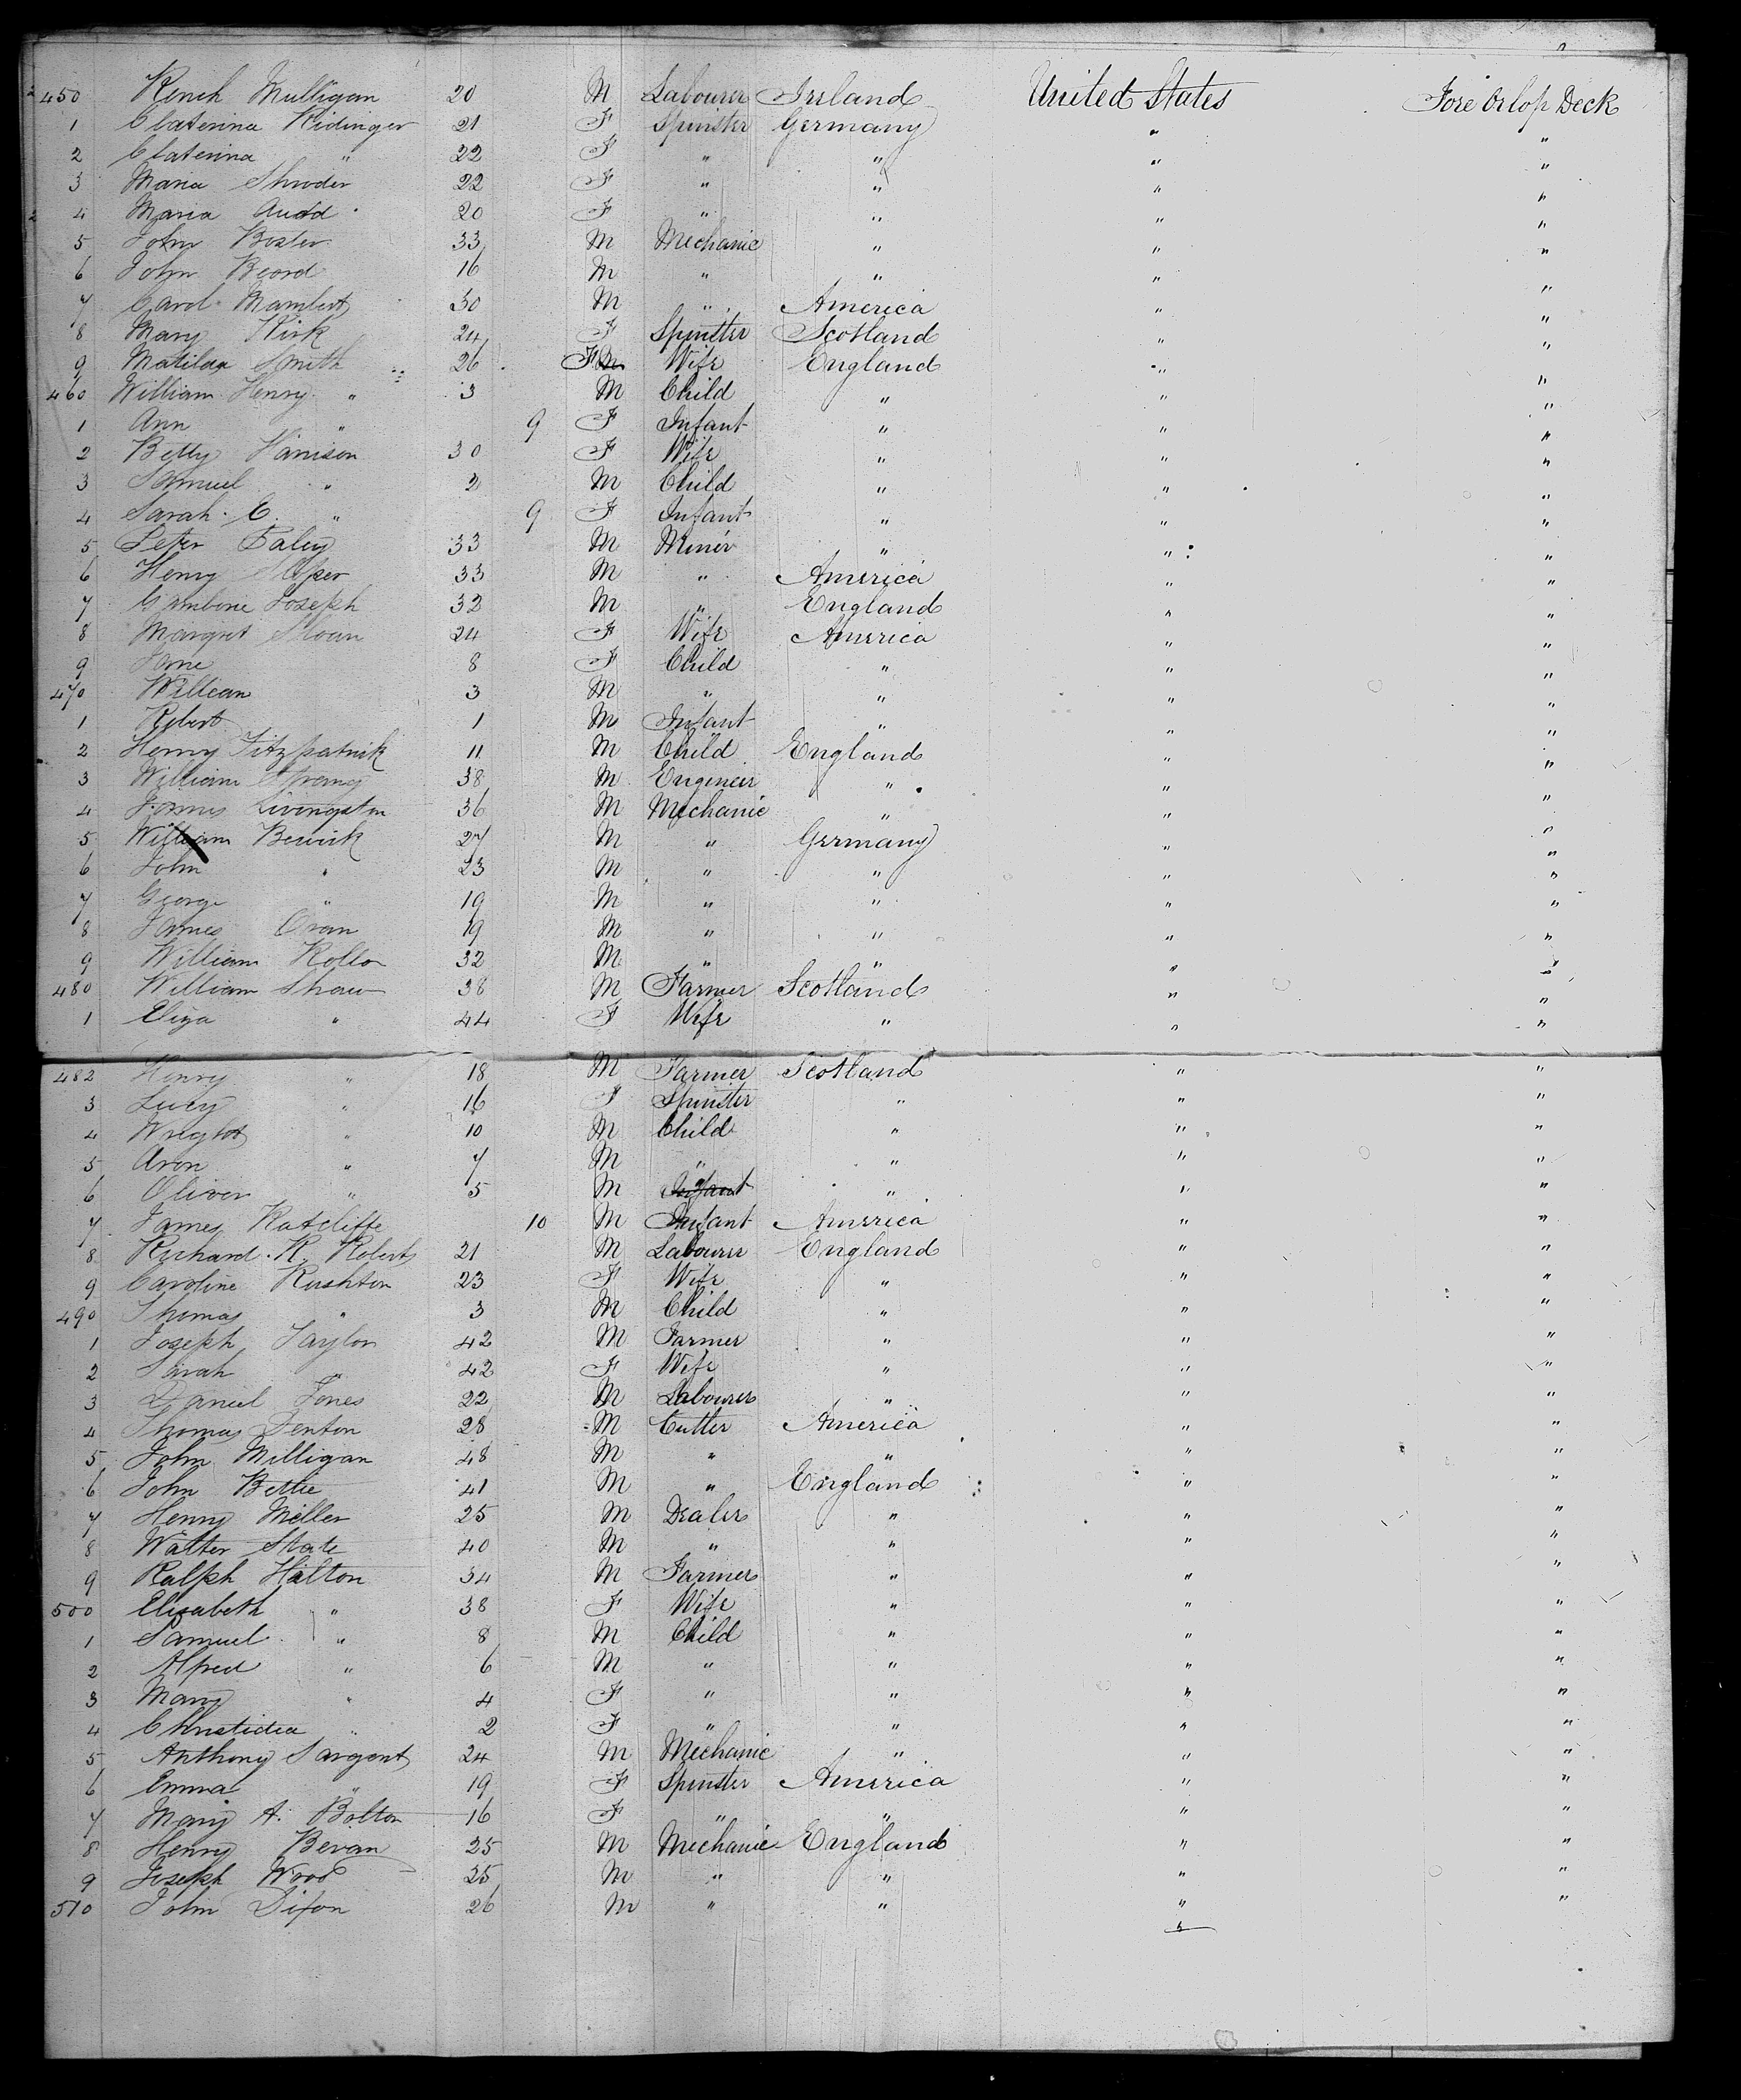 450 Rench Mulligan 20 M Labourer Ireland United States Fore Orlop Deck
1 Claterina Ridinger 21 F Spinster Germany " "
2 Claterina " 22 F " " " "
3 Maria Shroder 22 F " " " "
4 Maria Audd 20 F " " " "
5 John Bosler 33 M Mechanic " " "
6 John Beord 16 M " " " "
7 Carol Mambert 30 M " America " "
8 Mary Kirk 24 F Spinster Scotland " "
9 Matilda Smith 26 F Wife England " "
460 William Henry " 3 M Child " " "
1 Ann " 9 F Infant " " "
2 Betty Harrison 30 F Wife " " "
3 Samuel " 2 M Child " " "
4 Sarah E. " 9 F Infant " " "
5 Peter Baley 33 M Miner " " "
6 Henry 33 M " America " "
7 Joseph 32 M " England " "
8 Margret Sloan 24 F Wife America " "
9 Jane 8 F Child " " "
470 William 3 M " " " "
1 Robert 1 M Infant " " "
2 Henry Fitzpatrick 11 M Child England " "
3 William Strang 38 M Engineer " " "
4 James Livingston 36 M Mechanic " " "
5 William Bewick 27 M " Germany " "
6 John " 23 M " " " "
7 George " 19 M " " " "
8 James Oran 19 M " " " "
9 William Rollo 32 M " " " "
480 William Shaw 38 M Farmer Scotland " "
1 Eliza " 44 F Wife " " "
482 Henry " 18 M Farmer Scotland " "
3 Lucy " 16 F Spinster " " "
4 Wright " 10 M Child " " "
5 Aron " 7 M " " " "
6 Oliver " 5 M Infant " " "
7 James Ratcliffe 10 M Infant America " "
8 Richard R. Roberts 21 M Labourer England " "
9 Caroline Rushton 23 F Wife " " "
490 Thomas " 3 M Child " " "
1 Joseph Taylor 42 M Farmer " " "
2 Sarah " 42 F Wife " " "
3 Daniel Jones 22 M Labourer " " "
4 Thomas Denton 28 M Cutler America " "
5 John Milligan 48 M " " " "
6 John Bettie 41 M " England " "
7 Henry Miller 25 M Dealer " " "
8 Walter State 40 M " " " "
9 Ralph Halton 34 M Farmer " " "
500 Elisabeth " 38 F Wife " " "
1 Samuel " 8 M Child " " "
2 Alfred " 6 M " " " "
3 Mary " 4 F " " " "
4 Christidia " 2 F " " " "
5 Anthony Sargent 24 M Mechanic " " "
6 Emma " 19 F Spinster America " "
7 Mary A. Bolton 16 F " " " "
8 Henry Bevan 25 M Mechanic England " "
9 Joseph Wood 25 M " " " "
510 John Dixon 26 M " " " "
"